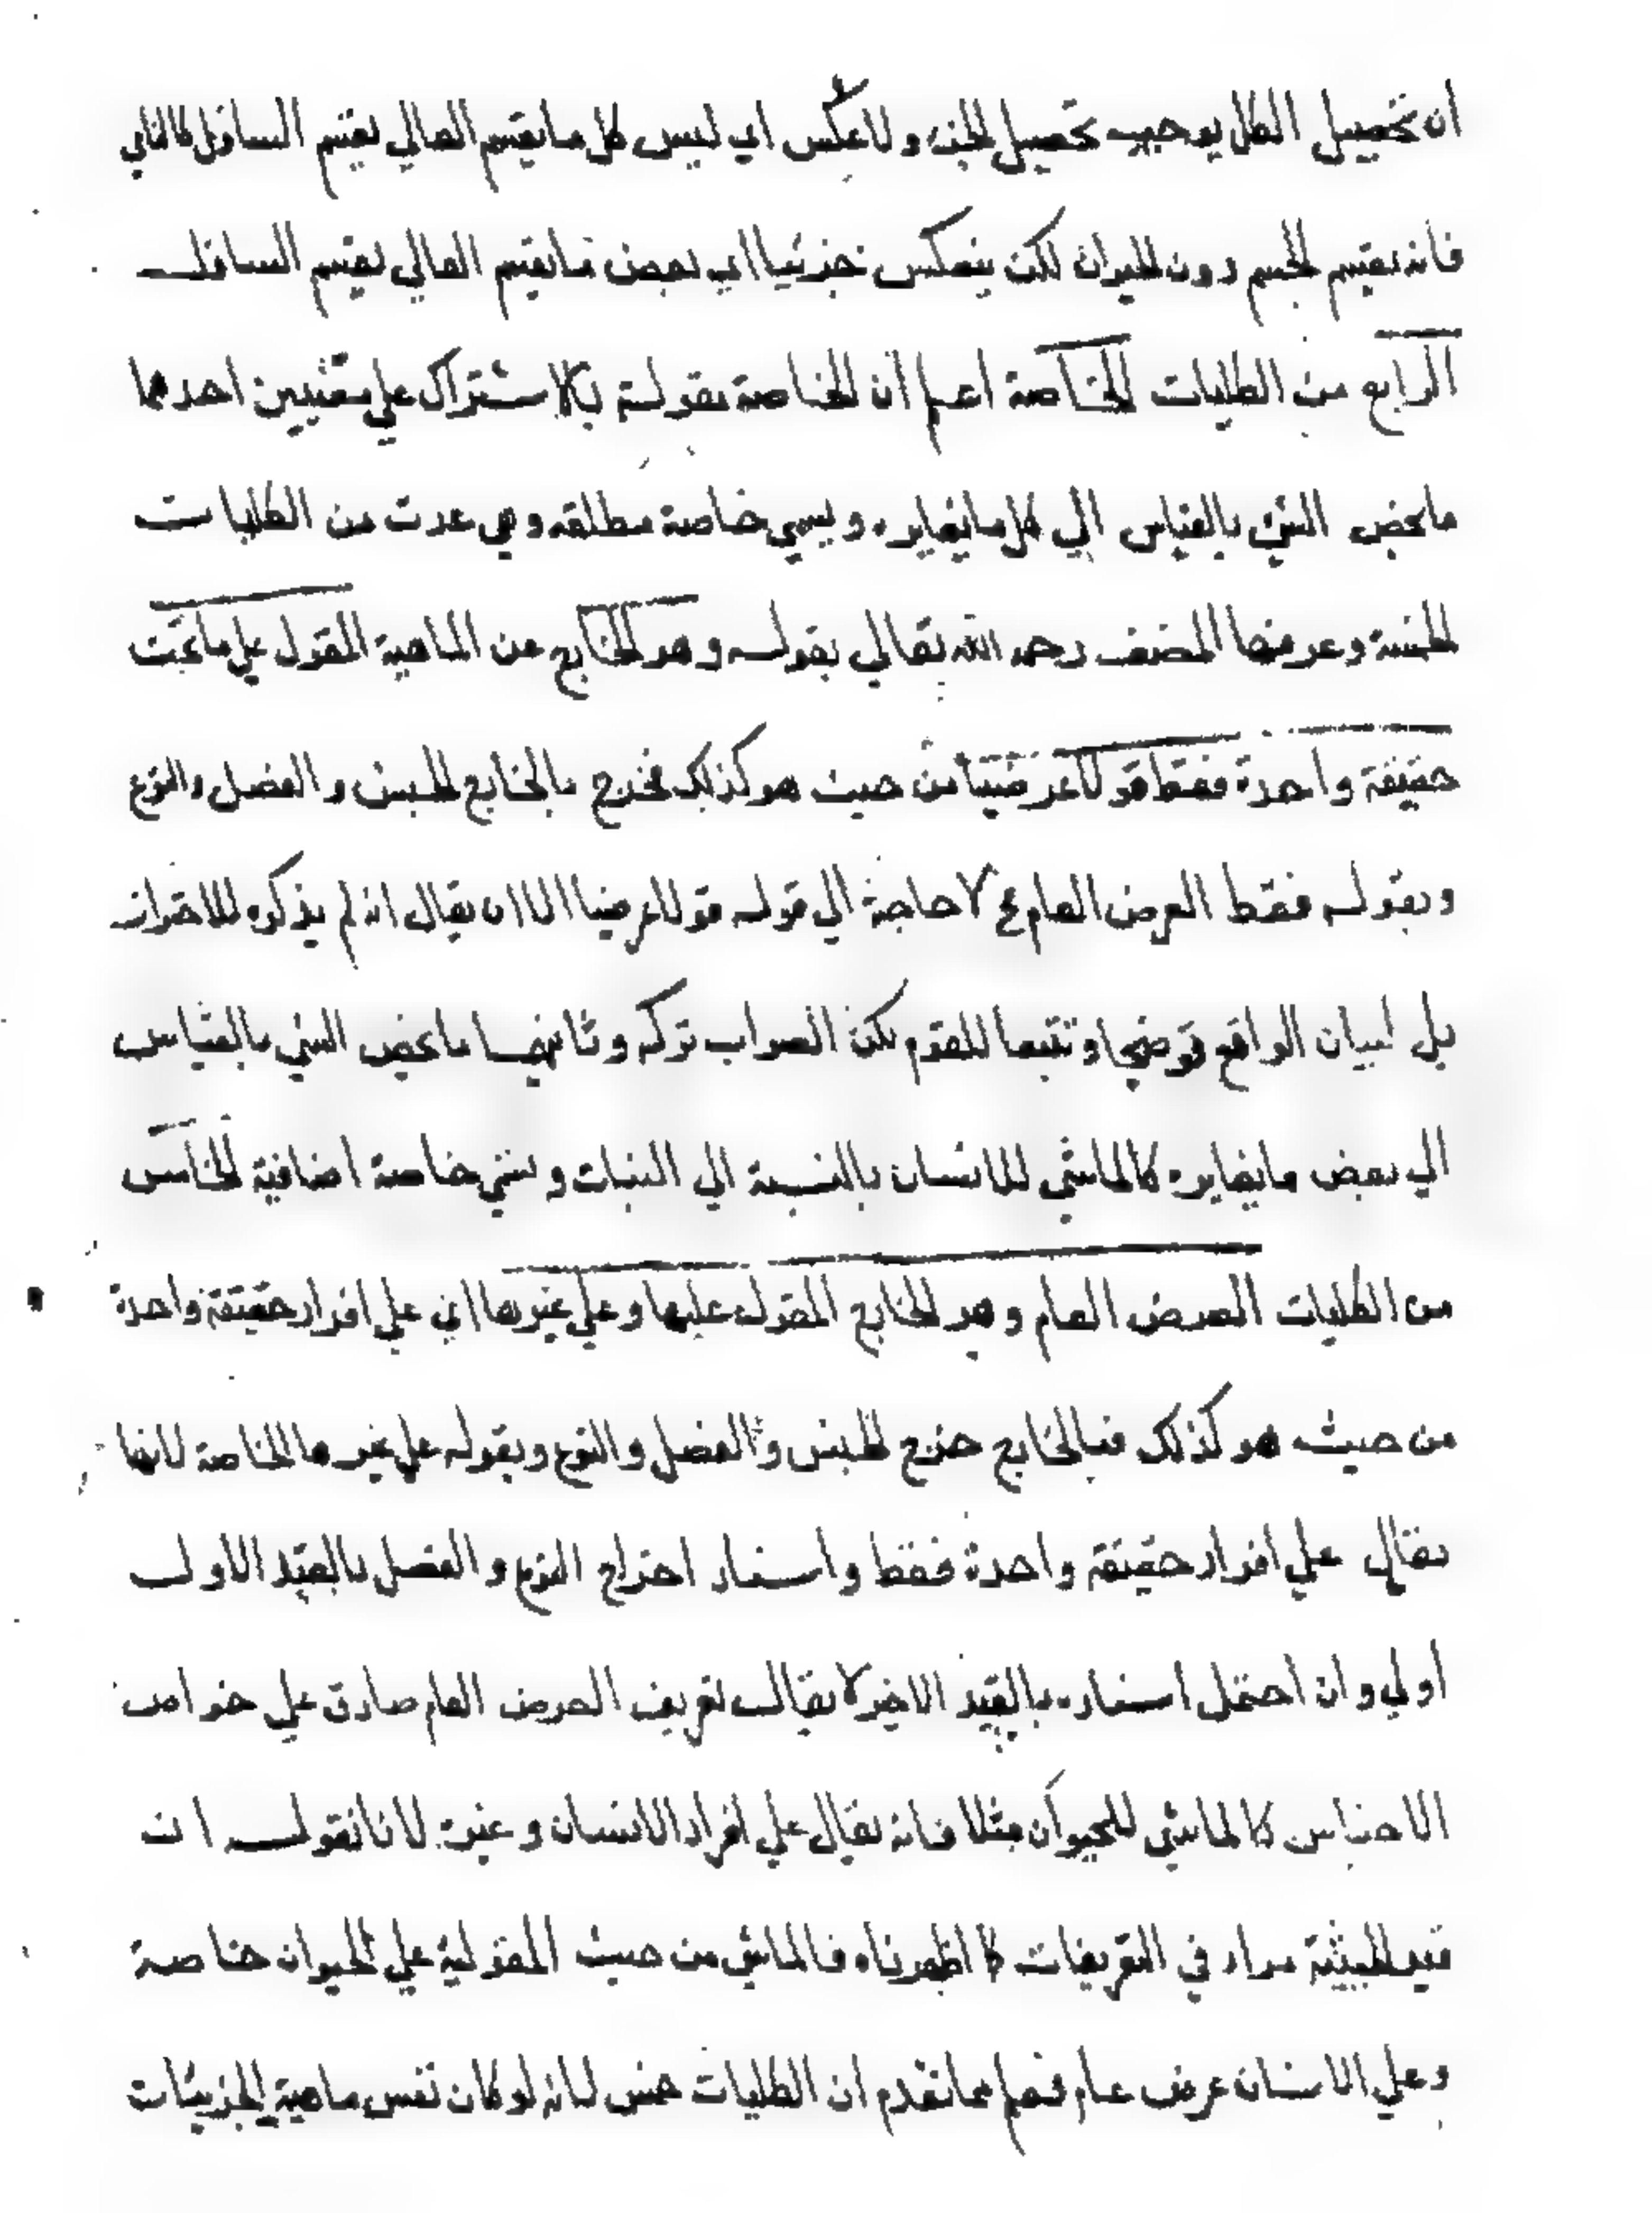 ان تحصيل الكل يوجب تحصيل الجزء ولا عكس اي ليس كل ما يقسم العالي يقسم السافل كالنامي
فانه يقسم الجسم دون الحيوان لكن ينعكس جزئيا اي بعض ما يقسم العالي يقسم السافل
الرابع من الكليات الخاصة اعلم ان الخاصة مقولة بالاشتراك علي معنيين احدهما
ما يخص الشئ بالقياس الي كل ما يغايره ويسمي خاصة مطلقه وهي عدت من الكليات
الخمسة وعرفها المصنف رحمه الله تعالي بقوله وهو الخارج عن الماهية المقول علي ما تحت
حقيقة واحدة فقط قولا عرضيا من حيث هو كذلك فخرج بالخارج الجنس والفصل والنوع
وبقوله فقط العرض العام فح لا حاجة الي قوله قولا عرضيا الا ان يقال انه لم يذكره للاحتراز
بل لبيان الواقع توضيحا وتتبعا للقوم لكن الصواب تركه وثانيهما ما يخص الشي بالقياس
الي بعض ما يغايره كالماشي للانسان بالنسبة الي النبات وتسمي خاصة اضافية الخامس
من الكليات العرض العام وهو الخارج المقول عليها وعلي غيرها اي علي افراد حقيقة واحدة
من حيث هو كذلك فبالخارج خرج الجنس والفصل والنوع وبقوله علي غيرها الخاصة لانها
يقال علي افراد حقيقة واحدة فقط واسناد اخراج النوع والفصل بالقيد الاول
اولي وان احتمل اسناده بالقيد الاخير لا يقال تعريف العرض العام صادق علي خواص
الاجناس كالماشي للحيوان مثلا فانه يقال علي افراد الانسان وغيره لانا نقول ان
قيد الحيثية مراد في التعريفات كما اظهرناه فالماشي من حيث المقولية علي الحيوان خاصة
وعلي الانسان عرض عام فعلم مما تقدم ان الكليات خمس لانه لو كان نفس ماهية الجزئيات